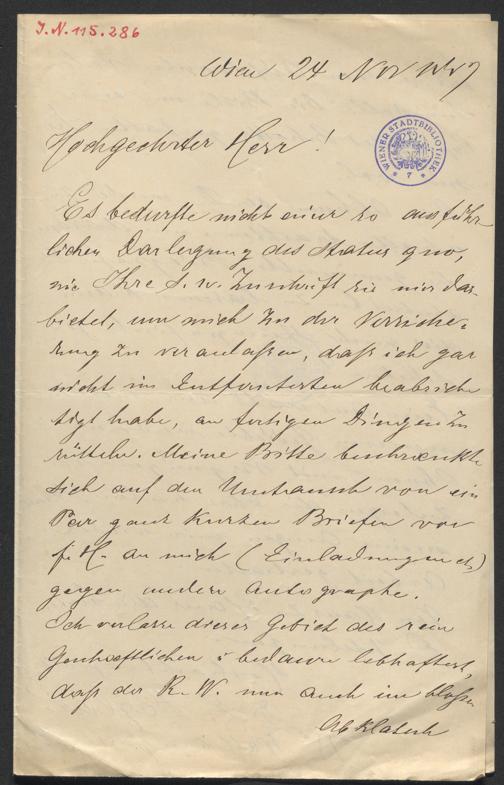 J.N. 115.286
Wien 24 Nov
Hochgeehrter Herr!
WIENER STADTBIBLIOTHEK
* 7 *
Es bedurfte nicht einer so ausführ-
lichen Darlegung des status quo,
wie Ihre s. w. Zuschrift sie mir dar-
bietet, um mich zu der Versiche-
rung zu veranlaßen, daß ich gar
nicht im Entferntesten beabsich
tigt habe, an fertigen Dingen zu
rütteln. Meine Bitte beschraenkte
sich auf den Umtausch von ein
Par ganz kurzen Briefen von
f. H. an mich (Einladungen etc)
gegen andere Autographe.
Ich verlasse dieses Gebiet des rein
Geschaeftlichen & bedaure lebhaftest,
daß der R. W. nun auch im bloßen
Abklatsch